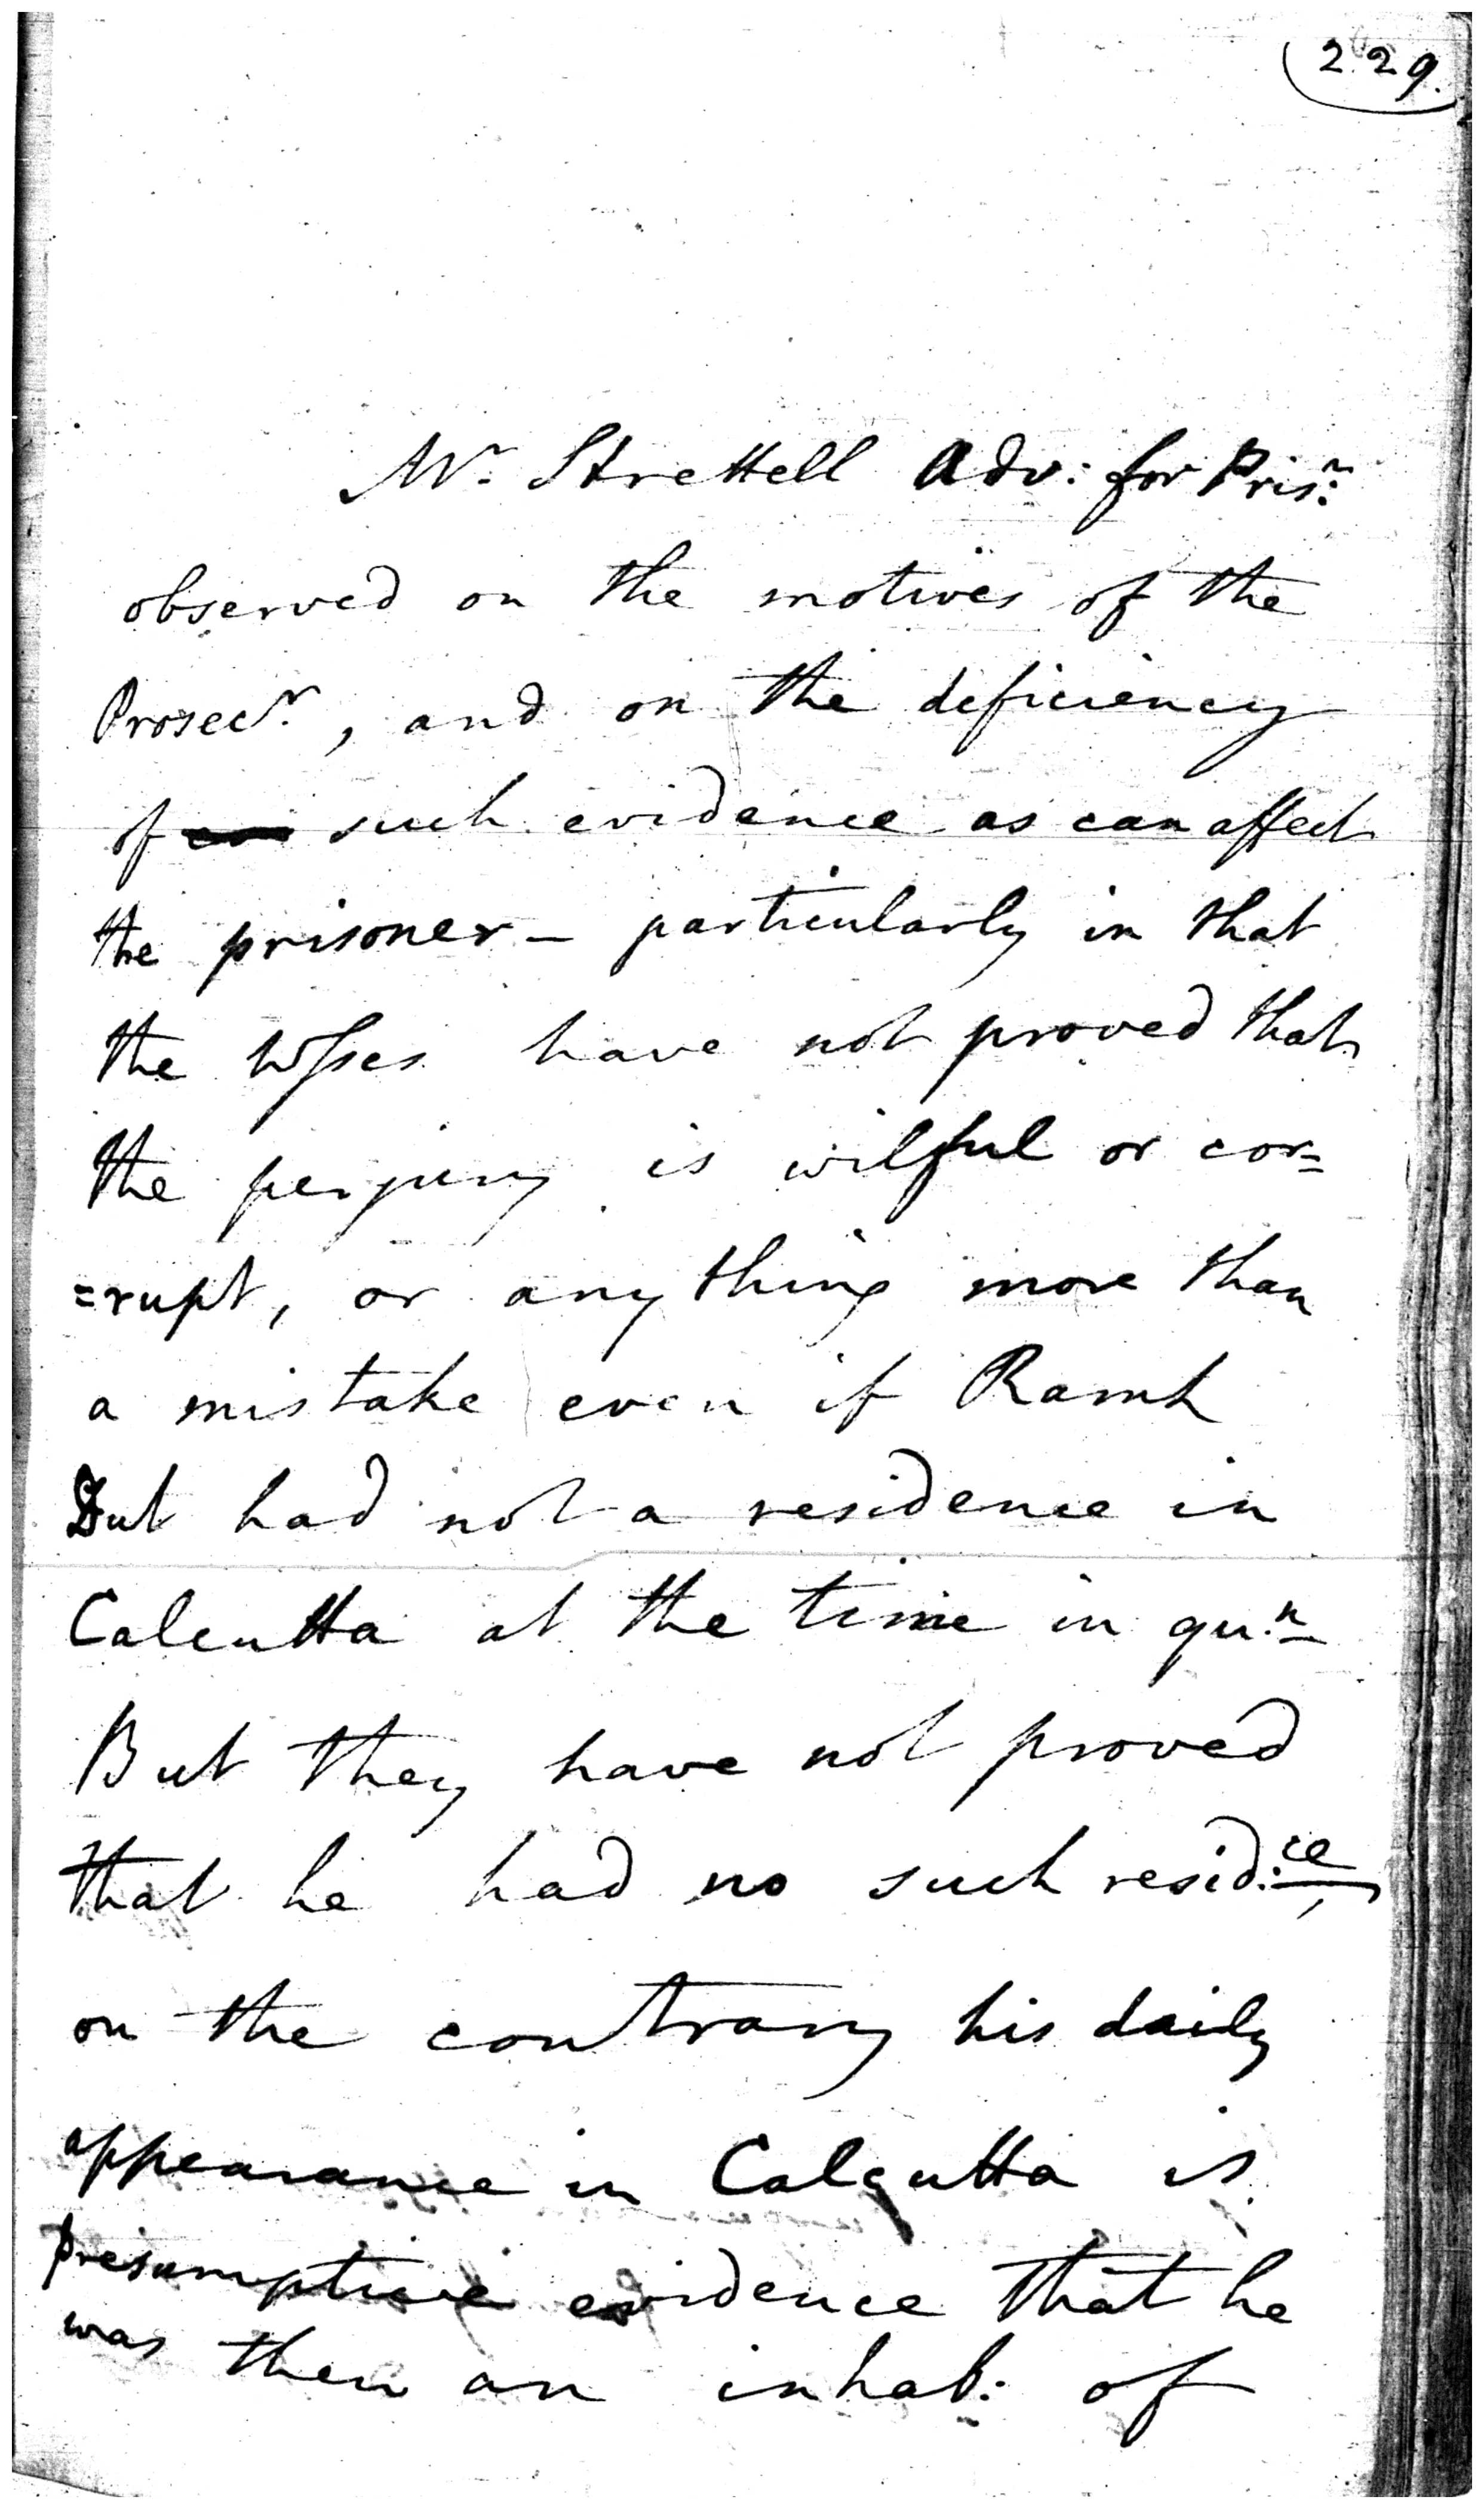 229.
Mr. Strettell Adv: for Prisr.
observed on the motives of the
Prosecr., and on the deficiency
of such evidence as can affect
the prisoner - particularly in that
the Wsses have not proved that
the perjury is wilful or cor=
=rupt, or any thing more than
a mistake even if Ramk
Dut had not a residence in
Calcutta at the time in qu.n
But they have not proved
that he had no such resid:ce,
on the contrary his daily
appearance in Calcutta is
presumptive evidence that he
was then an inhab: of